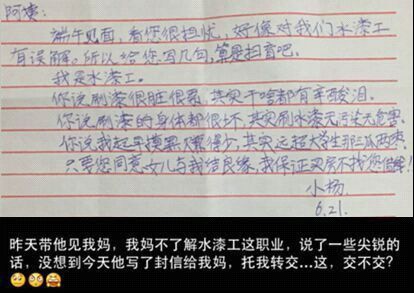 阿姨：
端午见面，看您很担忧，好像对我们水漆工
有误解。所以给您写几句，算是扫盲吧。
我是水漆工。
你说刷漆很脏很累，其实干啥都有辛酸泪。
你说刷漆的身体都很坏，其实刷水漆无污染无危害。
你说我起早摸黑又赚得少，其实远超大学生那三瓜两枣。
只要您同意女儿与我结良缘，我保证买房不找您借钱！
小杨
6.21.
昨天带他见我妈，我妈不了解水漆工这职业，说了一些尖锐的
话，没想到今天他写了封信给我妈，托我转交...这，交不交？